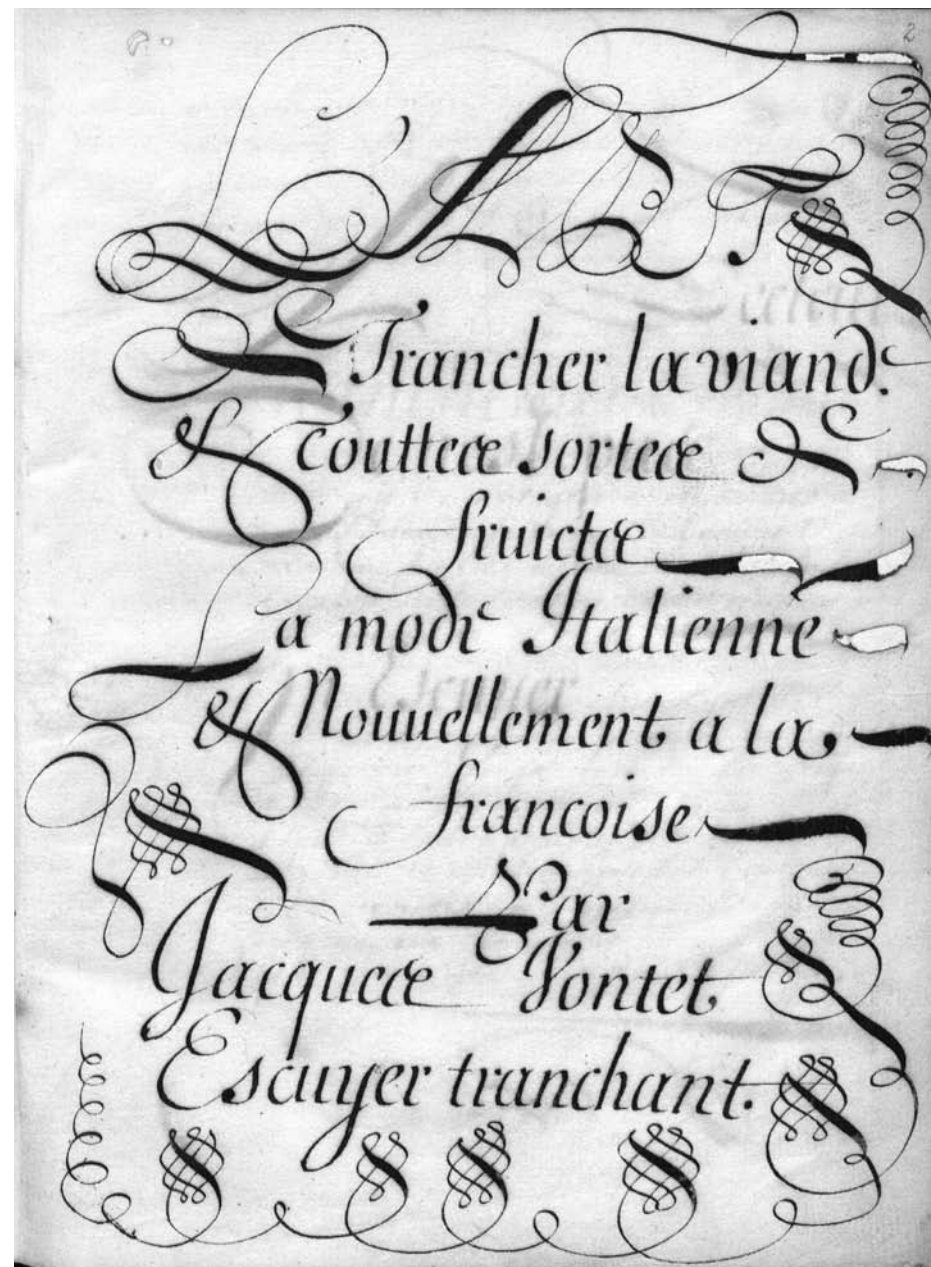 2
L'ART
de Trancher la viande
& touttes sortes de
fruictz
a mode Italienne
& Nouuellement a la
francoise
Par
Jacques Vontet
Escuyer tranchant.